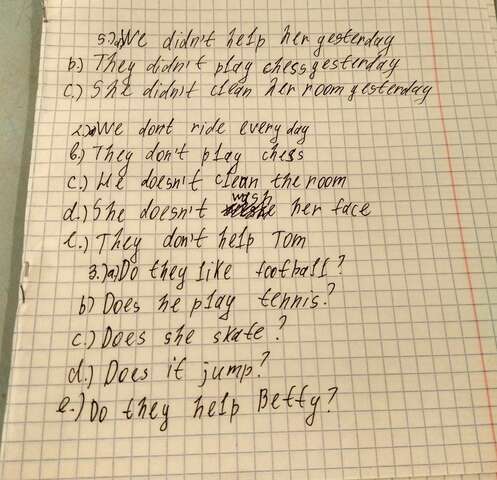 5.)a)We didn't help her yesterday
b.) They didn't play chess yesterday
c.) She didn't clean her room yesterday
2.)a)We dont ride every day
b.) They don't play chess
c.) He doesn't clean the room
d.) She doesn't wash her face
e.) They don't help Tom
3.)a)Do they like football?
b) Does he play tennis?
c.) Does she skate?
d.) Does it jump?
e.) Do they help Betty?